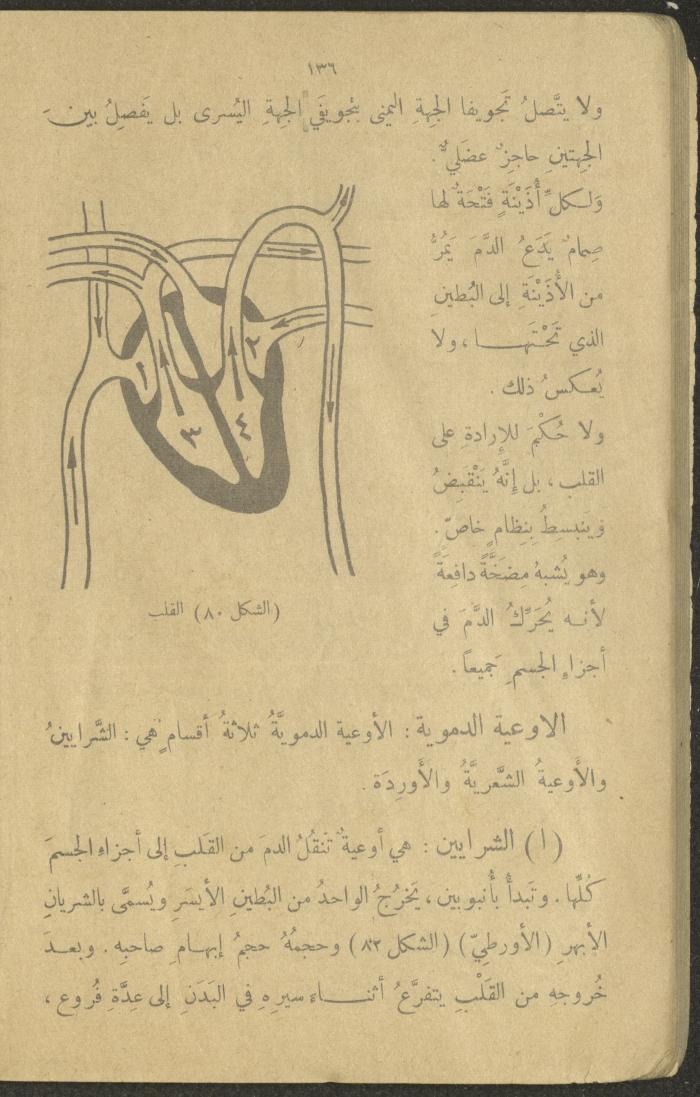 ١٣٦
ولا يتَّصلُ تَجويفا الجِهةِ اليمنى بتجويفَيِ الجهةِ اليُسرى بل يَفصِلُ بين
الجِهتينِ حاجزٌ عضَليٌّ.
وَلكلِّ أُذَيْنَةٍ فَتْحَةٌ لها
صِمامٌ يَدَعُ الدَّمَ يَمُرُّ
من الأُذَيْنَةِ إلى البُطينِ
الذي تَحْتَهـــا ، ولا
يُعكسُ ذلك .
ولا حُكْمَ للإِرادةِ على
القلب ، بل إِنَّهُ يَنْقَبِضُ
وينبسِطُ بِنِظامٍ خاصّ .
وهو يُشبهُ مِضَخَّةً دافِعَةً
لأنـه يُحَرِّكُ الدَّمَ في
أجزاءِ الجسمِ جَميعاً .
١
٢
٣
٤
(الشكل ٨٠) القلب
الاوعية الدموية : الأوعية الدمويَّةُ ثلاثةُ أقسامٍ هي : الشَّرايينُ
والأَوعيةُ الشَّعريَّةُ والأَورِدَة .
(١) الشرايين : هي أوعيةٌ تَنقُلُ الدمَ من القَلبِ إلى أجزاءِ الجسمَ
كُلِّها . وتَبدأُ بأُنبوبين ، يَخرُجُ الواحدُ من البُطينِ الأيسَرِ ويُسمَّى بالشريانِ
الأبهرِ (الأورطيّ) (الشكل ٨٢) وحجمُهُ حجمُ إبهـامِ صاحبِه . وبعـدَ
خُروجهِ من القَلْبِ يتفرَّعُ أثنـــاءَ سيرِهِ في البَدَنِ إلى عِدَّةِ فُروع ،